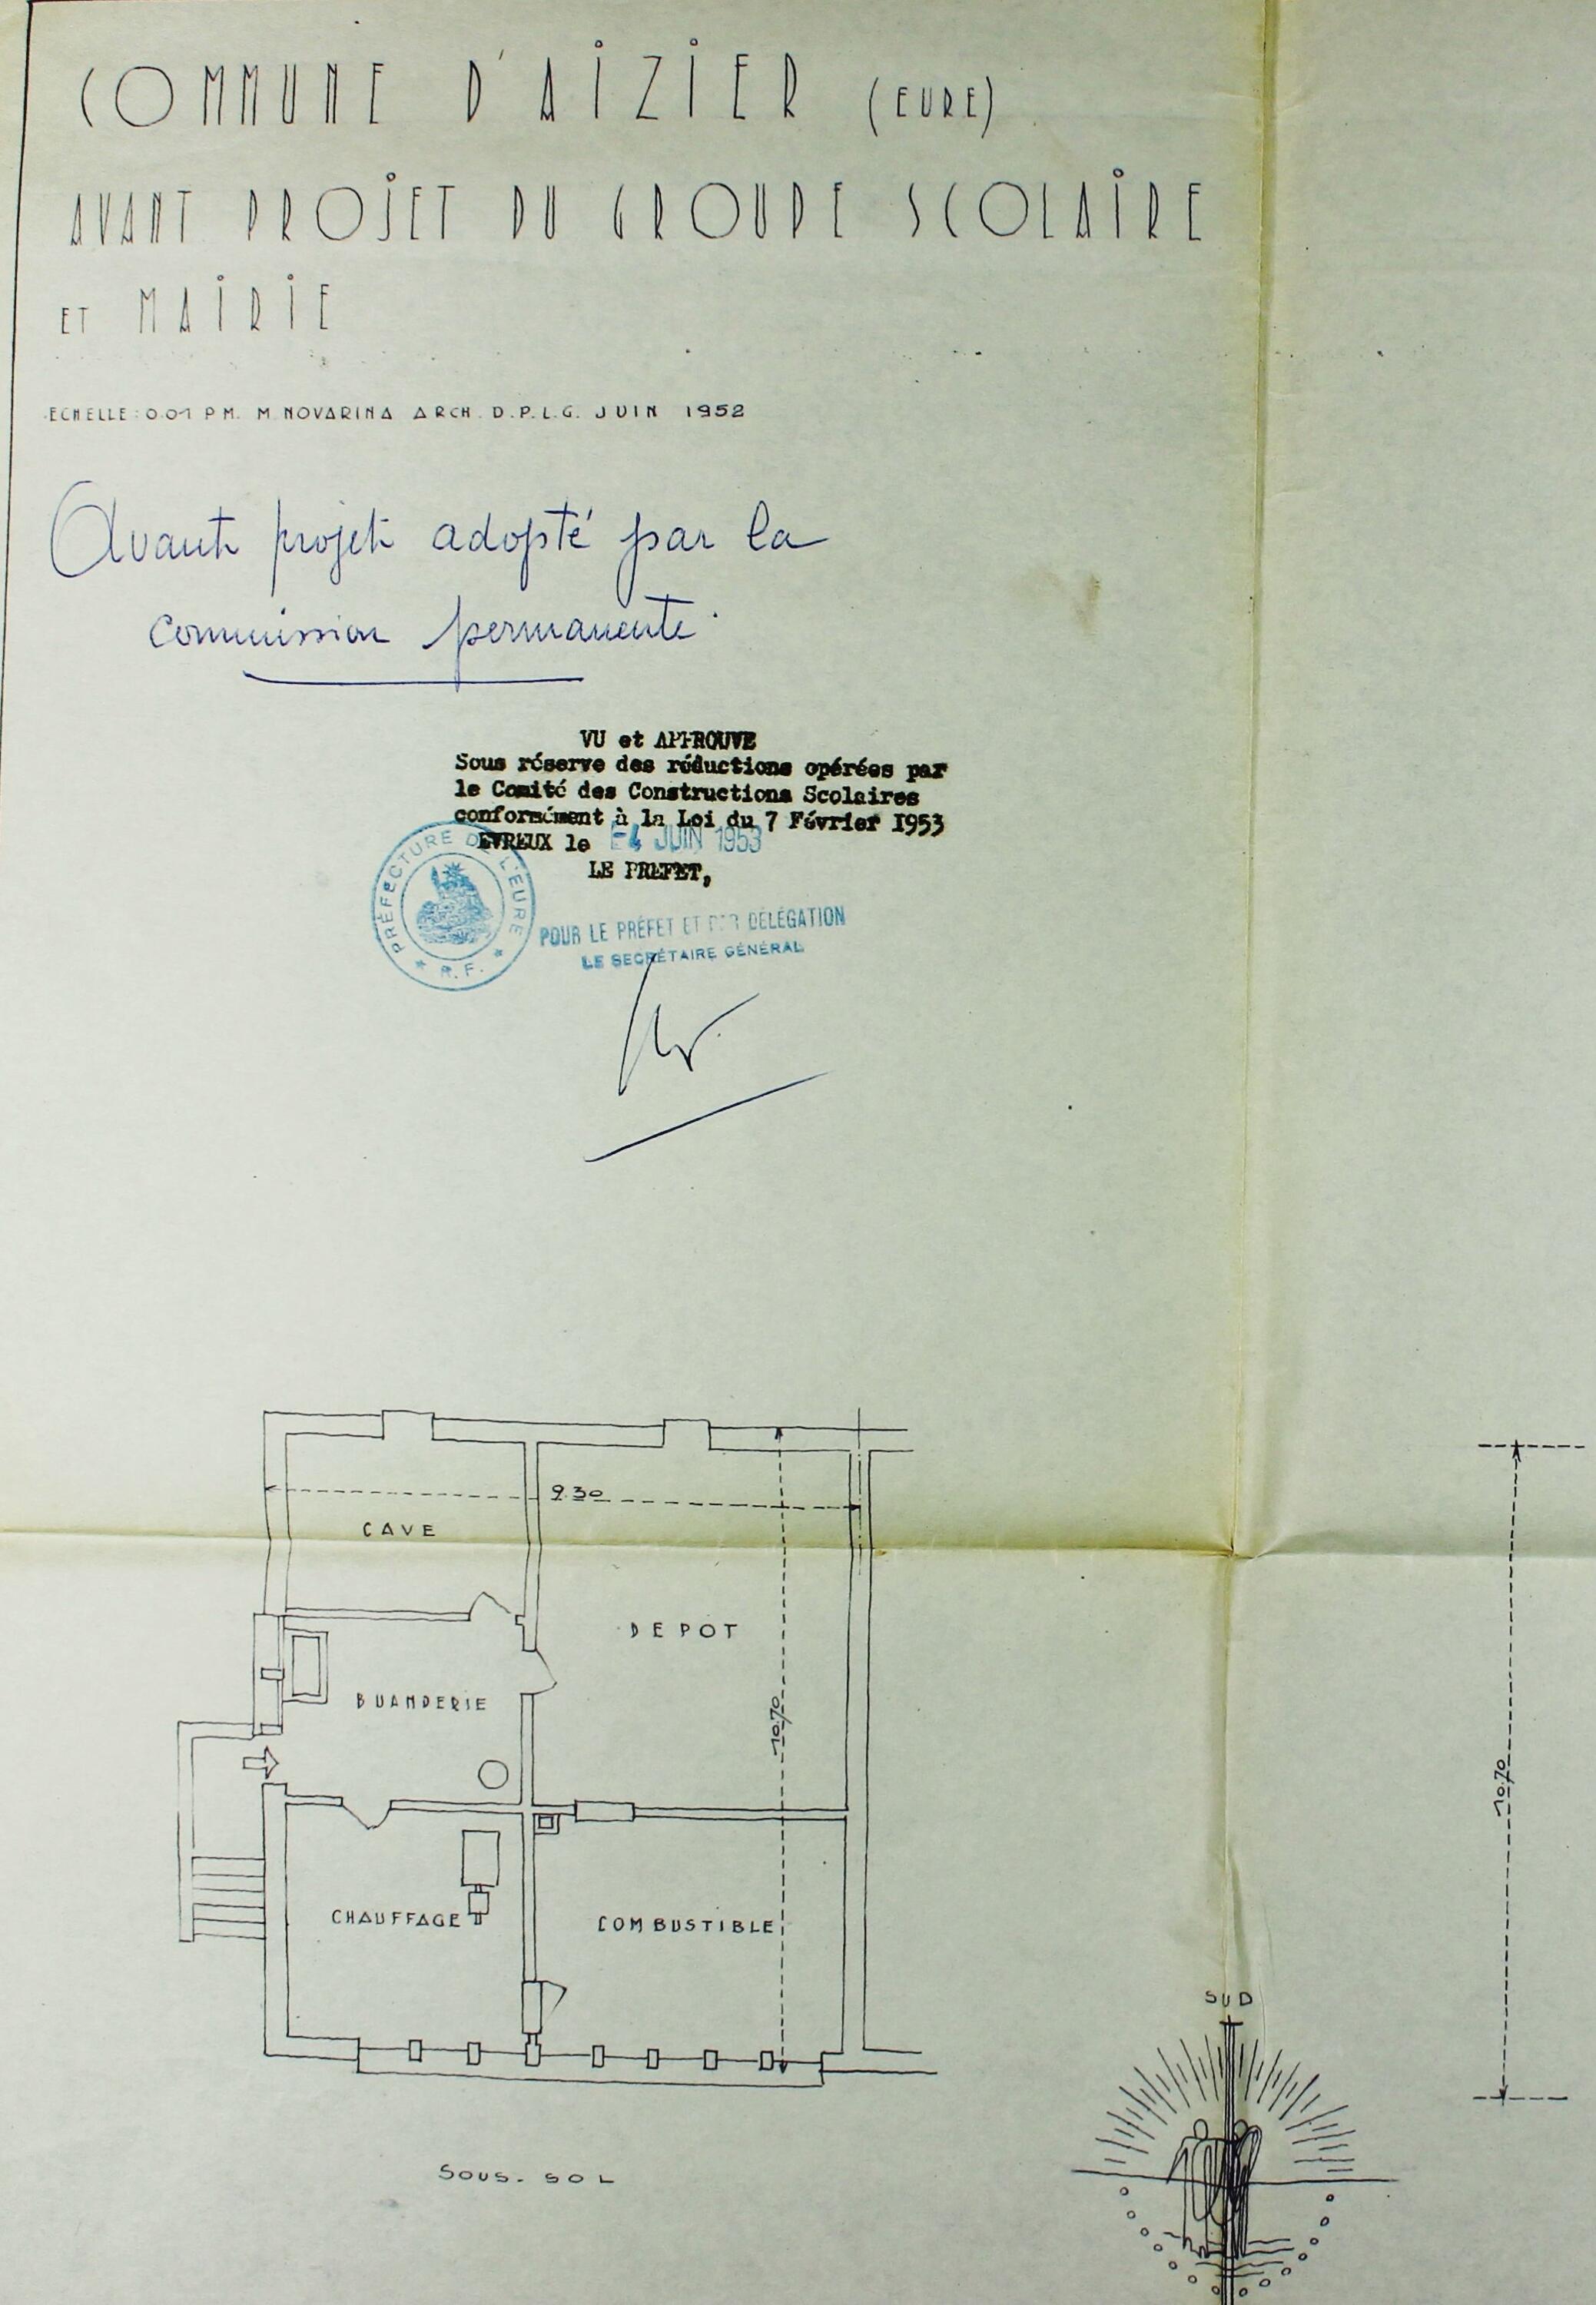 COMMUNE D'AIZIER (EURE)
AVANT PROJET DU GROUPE SCOLAIRE
ET MAIRIE
ECHELLE: 0.01 P M. M. NOVARINA ARCH. D.P.L.G. JUIN 1952
Avant projet adopté par la
commission permanente.
VU et APPROUVE
Sous réserve des réductions opérées par
le Comité des Constructions Scolaires
conformément à la Loi du 7 Février 1953
EVREUX le -4 JUIN 1953
LE PREFET,
PRÉFECTURE DE L'EURE
R.F.
POUR LE PRÉFET ET PAR DÉLÉGATION
LE SECRÉTAIRE GÉNÉRAL
9.30
CAVE
DEPOT
BUANDERIE
10.70
10.70
CHAUFFAGE
COMBUSTIBLE
SUD
SOUS-SOL